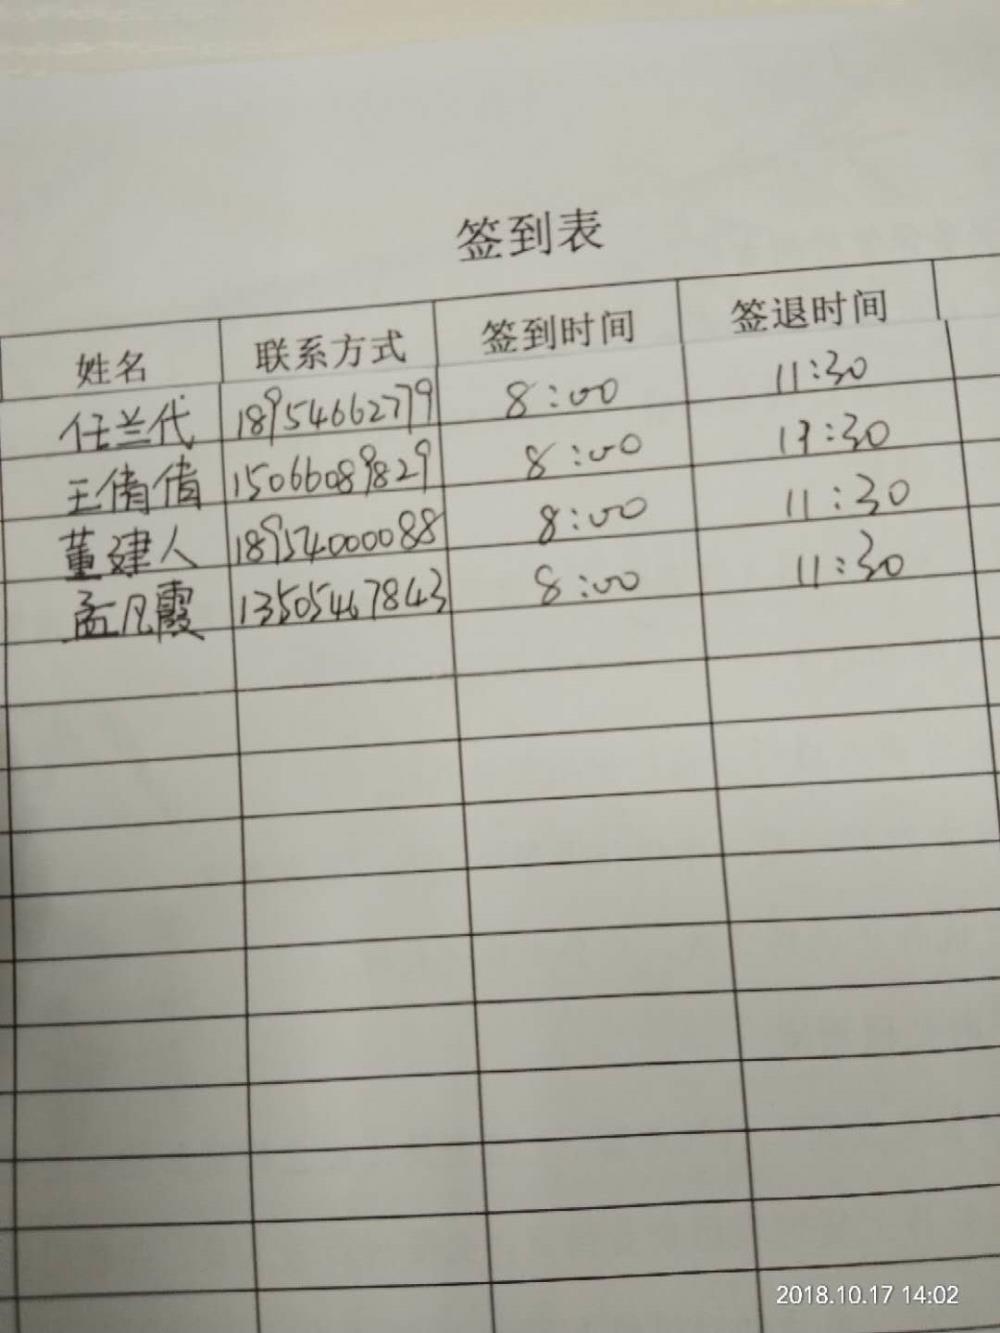 签到表
姓名 联系方式 签到时间 签退时间
任兰代 18954662779 8:00 11:30
王倩倩 15066089829 8:00 17:30
董建人 18954000088 8:00 11:30
孟凡霞 13505467843 8:00 11:30
2018.10.17 14:02